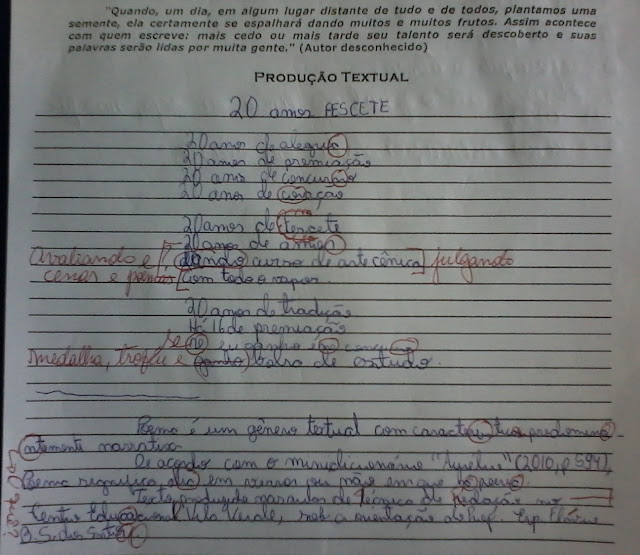 "Quando, um dia, em algum lugar distante de tudo e de todos, plantamos uma
semente, ela certamente se espalhará dando muitos e muitos frutos. Assim acontece
com quem escreve: mais cedo ou mais tarde seu talento será descoberto e suas
palavras serão lidas por muita gente." (Autor desconhecido)
PRODUÇÃO TEXTUAL
20 anos FESCETE
20 anos de alegria
20 anos de premiação
20 anos de
20 anos de coração
20 anos de
20 anos de
Avaliando e dando curso de arte cênica julgando
cenas e com todo o vapor.
20 anos de tradução
Há 16 de premiação
se eu ganho
medalha, troféu e ganho bolsa de estudo.
Poema é um gênero textual com
narrativo.
De acordo com o minidicionário "Aurélio" (2010, p.594),
Poema significa em versos ou não em que há
Texto produzido de Técnica de Redação no
Centro Educacional Vila Verde, sob a orientação do Prof. Esp.